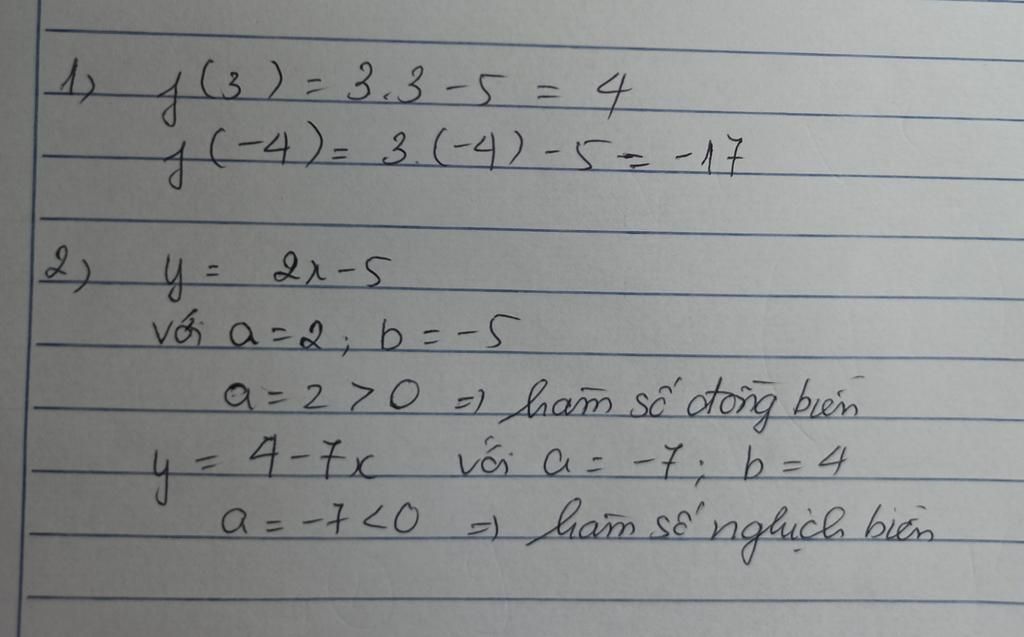 1) f(3) = 3.3 - 5 = 4
f(-4) = 3.(-4) - 5 = -17
2) y = 2x - 5
với a = 2 ; b = -5
a = 2 > 0 => hàm số đồng biến
y = 4 - 7x với a = -7 ; b = 4
a = -7 < 0 => hàm số nghịch biến